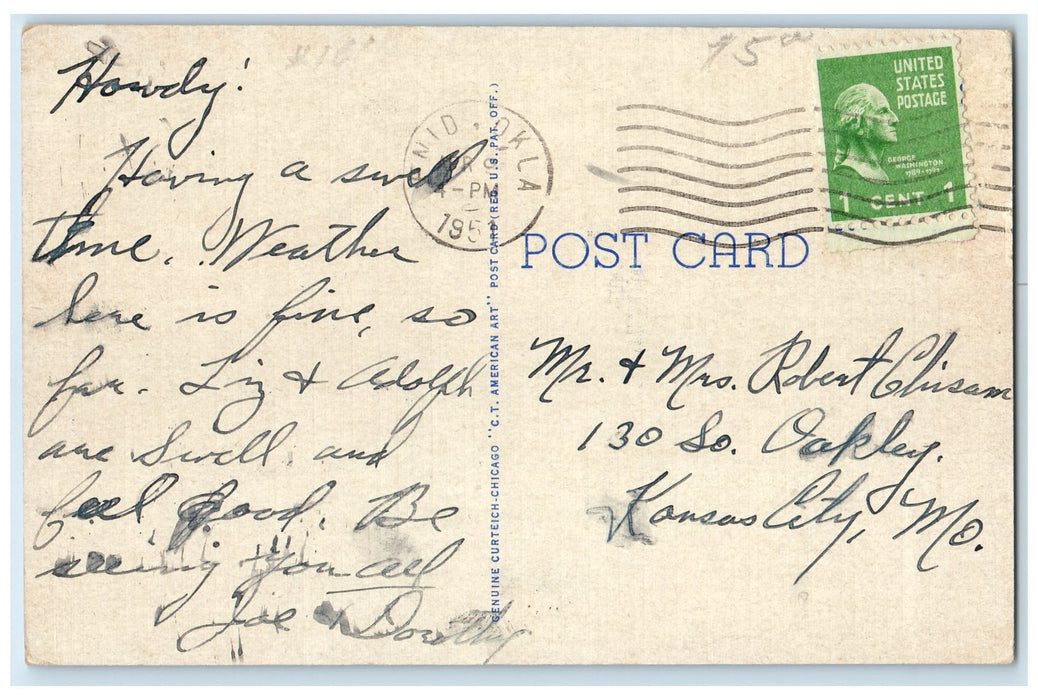 Howdy!
Having a swell
time. Weather
here is fine, so
far. Liz & Adolph
are swell, and
feel good. Be
seeing you all
Joe & Dorothy
GENUINE CURTEICH-CHICAGO "C.T. AMERICAN ART" POST CARD (REG. U.S. PAT. OFF.)
NID. OKLA
4-PM
195
POST CARD
75
UNITED
STATES
POSTAGE
GEORGE
WASHINGTON
1789-1797
1 CENT 1
Mr. & Mrs. Robert Chisam
130 So. Oakley.
Kansas City, Mo.